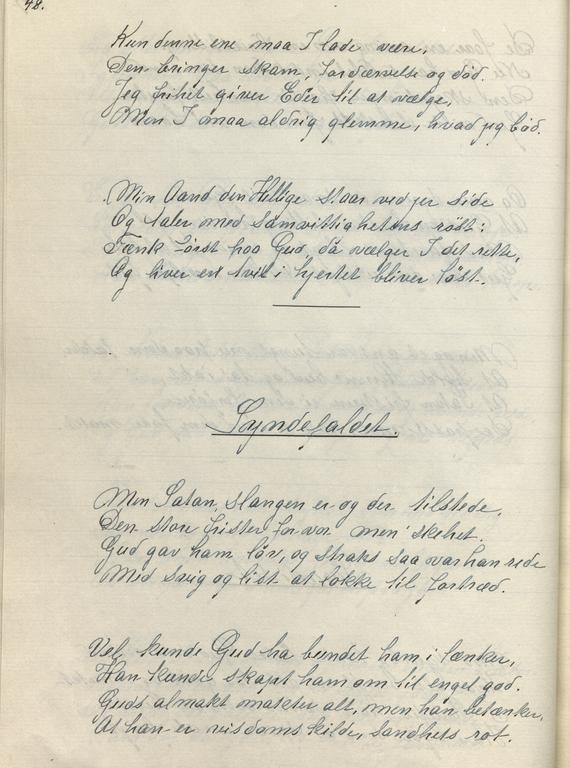 48.
Kun denne ene maa I lade være,
Den bringer skam, fordærvelse og död.
Jeg frihet giver Eder til at vælge,
Men I maa aldrig glemme, hvad jeg böd.
Min Aand den Hellige staar ved jer side
Og taler med samvittighetens röst:
Tænk först paa Gud, da vælger I det rette,
Og hver en tvil i hjertet bliver löst.
Syndefaldet.
Men Satan, slangen er og der tilstede,
Den store frister for vor menskehet.
Gud gav ham lov, og straks saa var han rede
Med svig og list at lokke til fortræd.
Vel kunde Gud ha bundet ham i lænker,
Han kunde skapt ham om til engel god.
Guds almakt makter alt, men han betænker,
At han er visdoms kilde, sandhets rot.